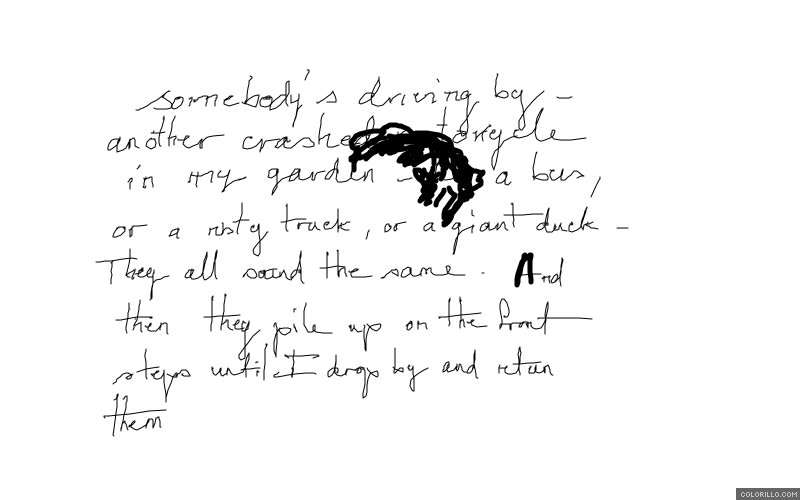 somebody's driving by –
another crashed
in my garden – a bus,
or a rusty truck, or a giant duck –
They all sound the same. And
then they pile up on the front
steps until I drop by and return
them
COLORILLO.COM